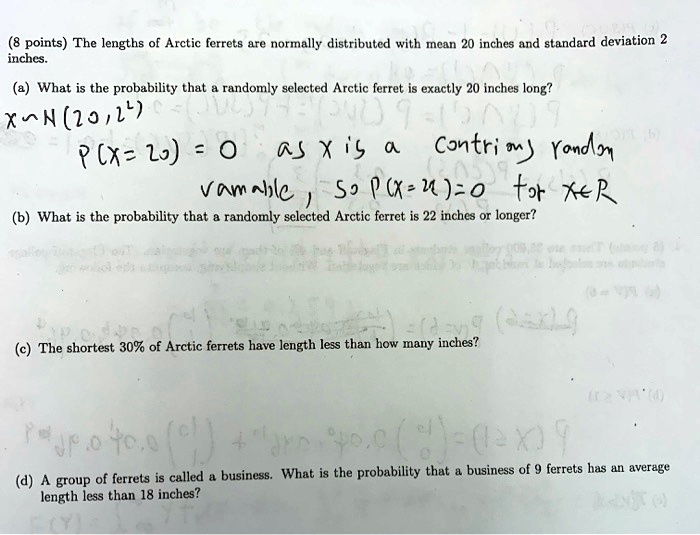 (8 points) The lengths of Arctic ferrets are normally distributed with mean 20 inches and standard deviation 2
inches.
(a) What is the probability that a randomly selected Arctic ferret is exactly 20 inches long?
X~N(20,2²)
P(X=20) = 0 as X is a random
, so P(X=x)=0 for x∈R
(b) What is the probability that a randomly selected Arctic ferret is 22 inches or longer?
(c) The shortest 30% of Arctic ferrets have length less than how many inches?
(d) A group of ferrets is called a business. What is the probability that a business of 9 ferrets has an average
length less than 18 inches?